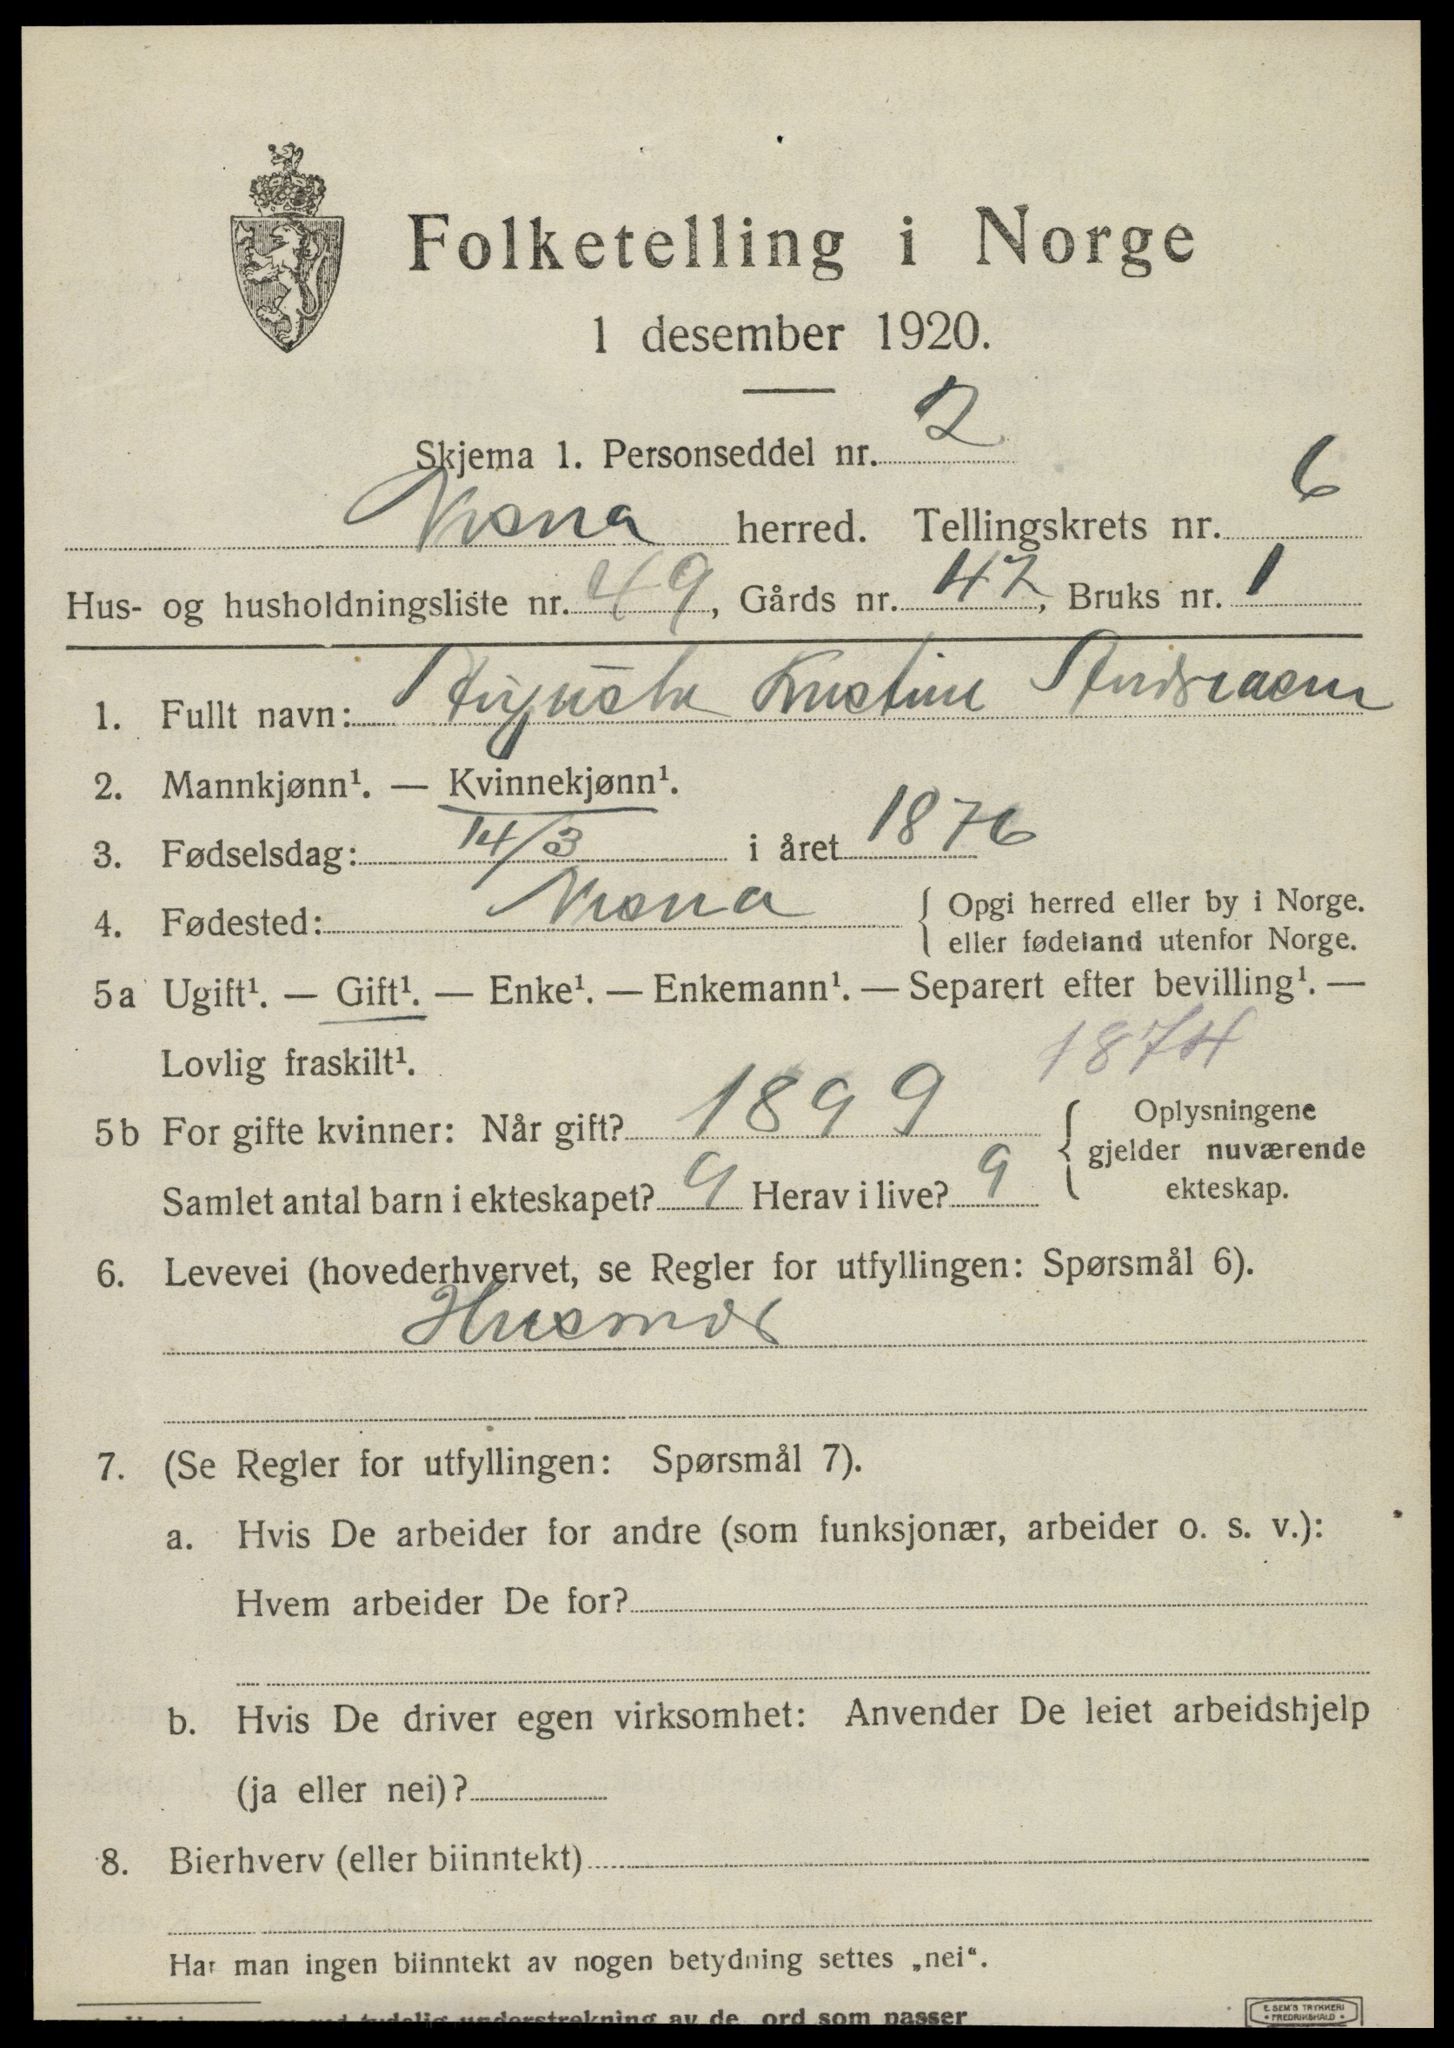 Folketelling i Norge
1 desember 1920.
Skjema 1. Personseddel nr. 2
Nesna herred. Tellingskrets nr. 6
Hus- og husholdningsliste nr. 49, Gårds nr. 47, Bruks nr. 1
1. Fullt navn: Augusta Kristine Andreasen
2. Mannkjønn¹. — Kvinnekjønn¹.
3. Fødselsdag: 14/3 i året 1876
4. Fødested: Nesna { Opgi herred eller by i Norge.
eller fødeland utenfor Norge.
5a Ugift¹. — Gift¹. — Enke¹. — Enkemann¹. — Separert efter bevilling¹. —
Lovlig fraskilt¹. 1874
5b For gifte kvinner: Når gift? 1899 { Oplysningene
gjelder nuværende
Samlet antal barn i ekteskapet? 9 Herav i live? 9 ekteskap.
6. Levevei (hovederhvervet, se Regler for utfyllingen: Spørsmål 6).
Husmor
7. (Se Regler for utfyllingen: Spørsmål 7).
a. Hvis De arbeider for andre (som funksjonær, arbeider o. s. v.):
Hvem arbeider De for?
b. Hvis De driver egen virksomhet: Anvender De leiet arbeidshjelp
(ja eller nei)?
8. Bierhverv (eller biinntekt)
Har man ingen biinntekt av nogen betydning settes „nei“.
understrekning av de ord som passer
E. SEM'S TRYKKERI
• FREDRIKSHALD •